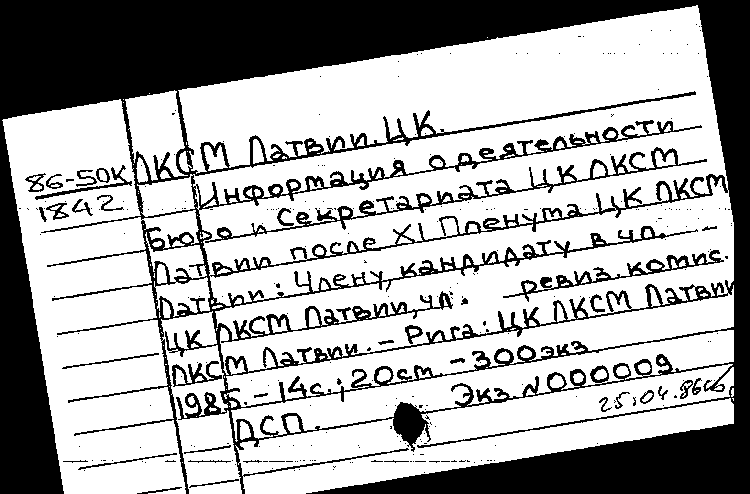 86-50к
1842
ЛКСМ Латвии. ЦК.
Информация о деятельности
Бюро и Секретариата ЦК ЛКСМ
Латвии после XI Пленума ЦК ЛКСМ
Латвии: Члену, кандидату в чл.
ЦК ЛКСМ Латвии, чл. ревиз. комис.
ЛКСМ Латвии. - Рига: ЦК ЛКСМ Латвии
1985. - 14с.; 20см. - 300экз
ДСП. Экз. №000009.
25.04.86